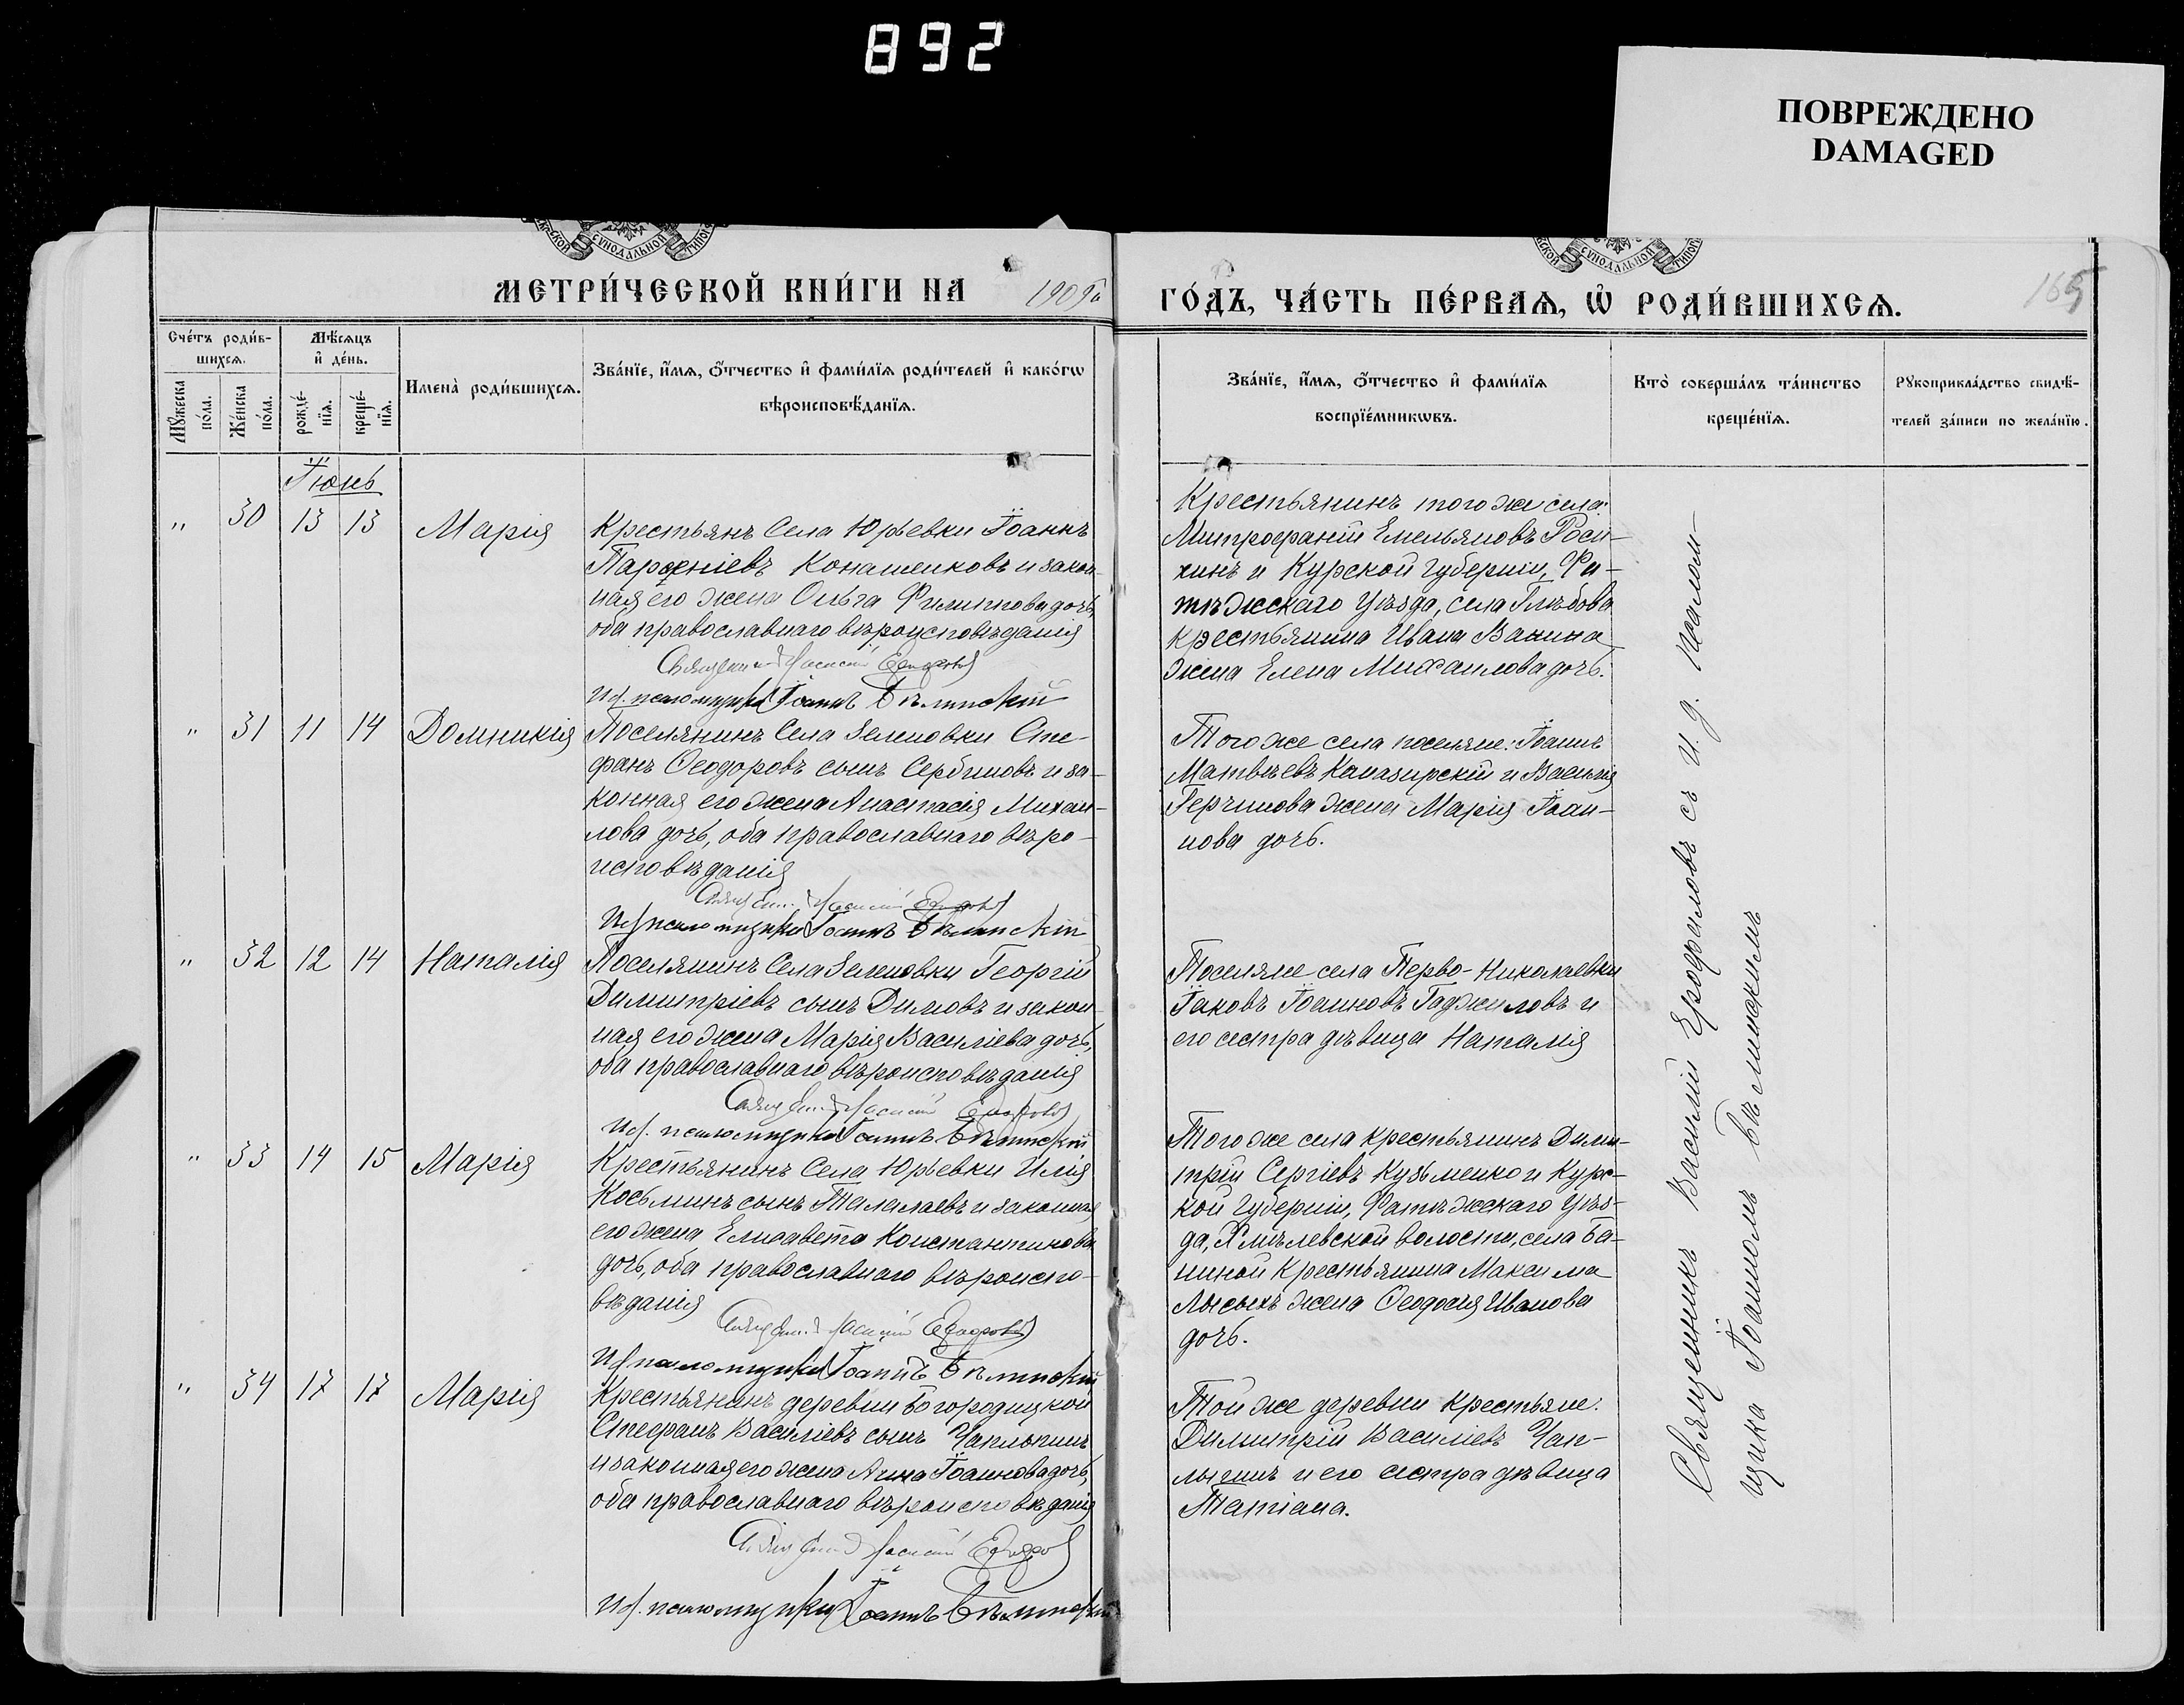 892
ПОВРЕЖДЕНО
DAMAGED
МЕТРИ́ЧЕСКОЙ КНИ́ГИ НА 1909 ГО́ДЪ, ЧА́СТЬ ПЕ́РВАѦ, Ѽ РОДИ́ВШИХСѦ.
165
Сче́тъ роди́в-
шихсѧ.
Мꙋжеска
по́ла.
Же́нска
по́ла.
Мѣ́сѧцъ
и҆ де́нь.
рожде́-
нїѧ.
креще́-
нїѧ.
Имена̀ роди́вшихсѧ.
Зва́нїе, и҆́мѧ, ѻ҆́тчество и҆ фами́лїѧ роди́телей и҆ како́гѡ
вѣроисповѣ́данїѧ.
Зва́нїе, и҆́мѧ, ѻ҆́тчество и҆ фами́лїѧ
воспрїе́мникѡвъ.
Кто̀ соверша́лъ та́инство
креще́нїѧ.
Рꙋкоприкла́дство свидѣ́-
телей за́писи по жела́нїю.
Іюнь
" 30 13 13 Марія
Крестьянъ Села Юрьевки Іоаннъ
Парѳеніевъ Конашенковъ и закон-
ная его жена Ольга Филиппова дочь,
оба православнаго вѣроисповѣданія
Священникъ Василій Ерофаловъ
И.д. псаломщика Іоаннъ Бѣлинскій
Крестьянинъ того же села:
Митрофаній Емельяновъ
и Курской губерніи, Фа-
тѣжскаго Уѣзда, села Глѣбова
крестьянина Ивана Ванина
жена Елена Михаилова дочь.
" 31 11 14 Домникія
Поселянинъ Села Зеленовки Сте-
фанъ Ѳеодоровъ сынъ Сербиновъ и за-
конная его жена Анастасія Михаи-
лова дочь, оба православнаго вѣро-
исповѣданія
Священ. Василій Ерофаловъ
И.д. псаломщика Іоаннъ Бѣлинскій
Того же села поселяне: Іоаннъ
Матвѣевъ Каназирскій и Василія
Герчинова жена Марія Іоан-
нова дочь.
" 32 12 14 Наталія
Поселянинъ Села Зеленовки Георгій
Димитріевъ сынъ Димовъ и закон-
ная его жена Марія Василіева дочь,
оба православнаго вѣроисповѣданія
Священ. Василій Ерофаловъ
И.д. псаломщика Іоаннъ Бѣлинскій
Поселяне села Перво-Николаевки
Іаковъ Іоанновъ Гаджиловъ и
его сестра дѣвица Наталія
" 33 14 15 Марія
Крестьянинъ Села Юрьевки Илія
Косьминъ сынъ Талалаевъ и законная
его жена Елисавета Константинова
дочь, оба православнаго вѣроиспо-
вѣданія
Священ. Василій Ерофаловъ
И.д. псаломщика Іоаннъ Бѣлинскій
Того же села крестьянинъ Дими-
трій Сергіевъ Кузьменко и Курс-
кой губерніи, Фатѣжскаго Уѣз-
да, Хмѣлевской волости, села Ба-
ниной крестьянина Максима
Лысыхъ жена Ѳеодосія Иванова
дочь.
" 34 17 17 Марія
Крестьянинъ деревни Богородицкой
Стефанъ Василіевъ сынъ Чаплыгинъ
и законная его жена Анна Іоаннова дочь,
оба православнаго вѣроисповѣданія
Священ. Василій Ерофаловъ
И.д. псаломщика Іоаннъ Бѣлинскій
Той же деревни крестьяне:
Димитрій Василіевъ Чап-
лыгинъ и его сестра дѣвица
Татіана.
Священникъ Василій Ерофаловъ съ и.д. псалом-
щика Іоанномъ Бѣлинскимъ